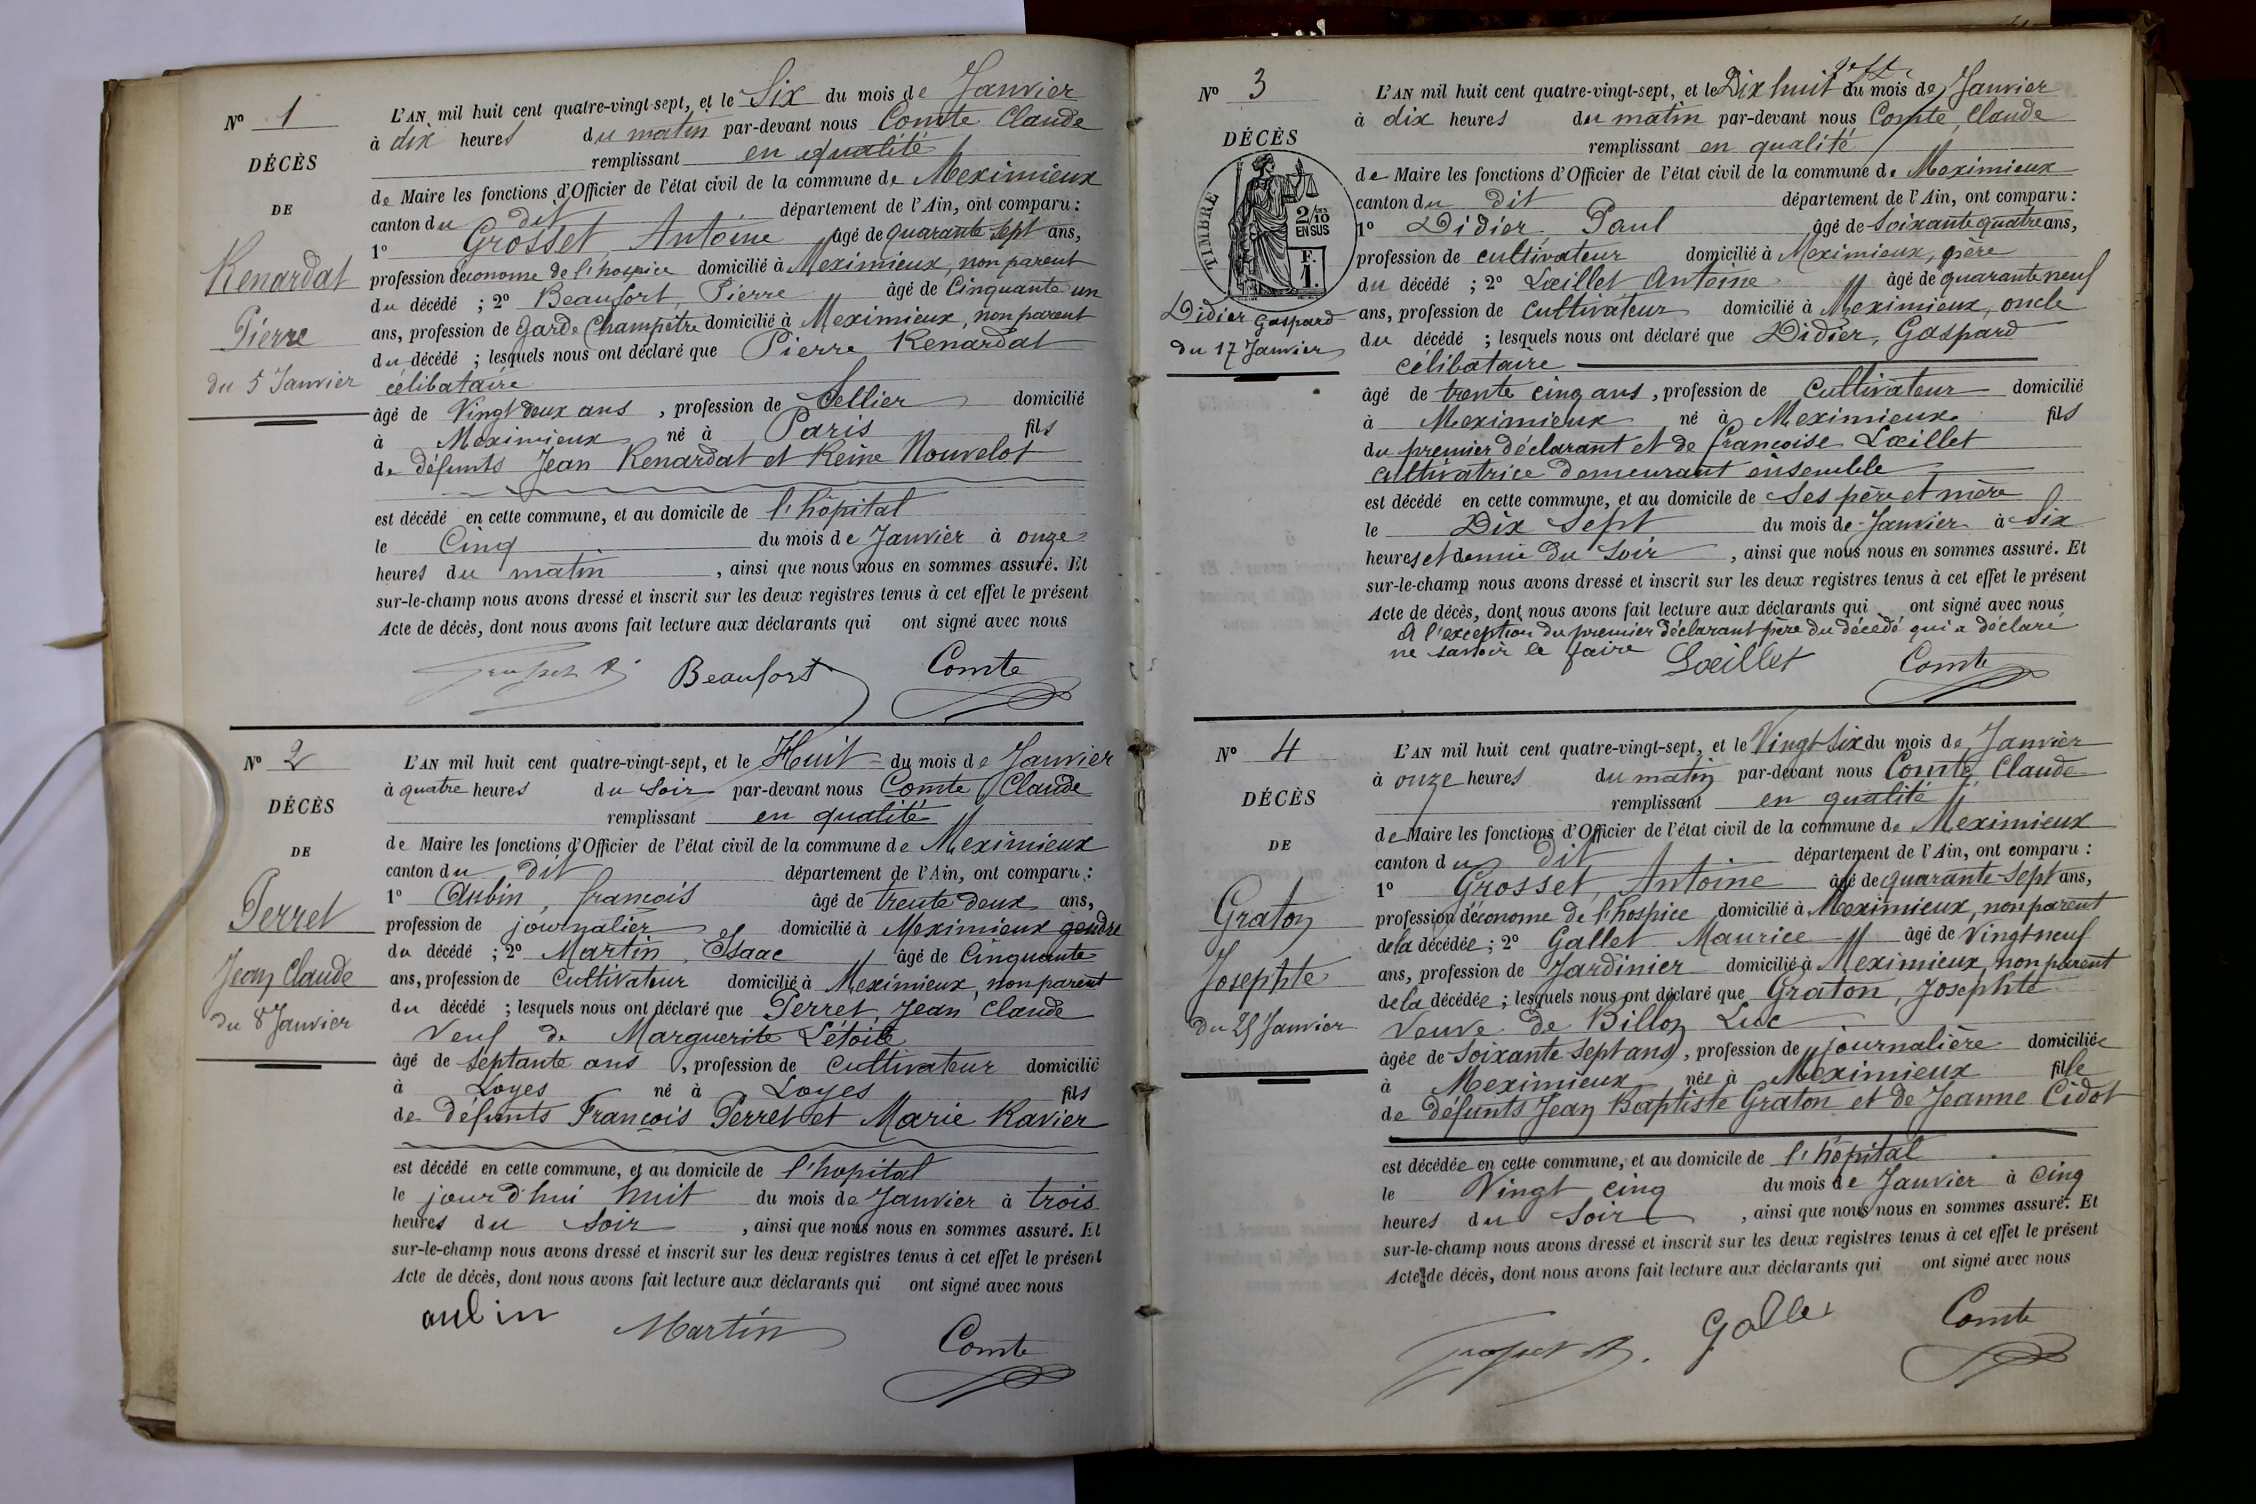 N° 1
DÉCÈS
DE
Renardat
Pierre
du 5 Janvier
L'AN mil huit cent quatre-vingt-sept, et le Six du mois de Janvier
à dix heures du matin par-devant nous Comte Claude
remplissant en qualité
de Maire les fonctions d'Officier de l'état civil de la commune de Meximieux
canton du dit département de l'Ain, ont comparu :
1° Grosset Antoine âgé de quarante sept ans,
profession d'économe de l'hospice domicilié à Meximieux, non parent
du décédé ; 2° Beaufort, Pierre âgé de Cinquante un
ans, profession de Garde Champêtre domicilié à Meximieux, non parent
du décédé ; lesquels nous ont déclaré que Pierre Renardat
célibataire
âgé de Vingt deux ans, profession de Sellier domicilié
à Meximieux né à Paris fils
de défunts Jean Renardat et Reine Nouvelot
est décédé en cette commune, et au domicile de l'hôpital
le Cinq du mois de Janvier à onze
heures du matin, ainsi que nous nous en sommes assuré. Et
sur-le-champ nous avons dressé et inscrit sur les deux registres tenus à cet effet le présent
Acte de décès, dont nous avons fait lecture aux déclarants qui ont signé avec nous
Beaufort Comte
N° 2
DÉCÈS
DE
Perret
Jean Claude
du 8 Janvier
L'AN mil huit cent quatre-vingt-sept, et le Huit du mois de Janvier
à quatre heures du Soir par-devant nous Comte Claude
remplissant en qualité
de Maire les fonctions d'Officier de l'état civil de la commune de Meximieux
canton du dit département de l'Ain, ont comparu :
1° Aubin, françois âgé de trente deux ans,
profession de journalier domicilié à Meximieux gendre
du décédé ; 2° Martin, Isaac âgé de Cinquante
ans, profession de Cultivateur domicilié à Meximieux, non parent
du décédé ; lesquels nous ont déclaré que Perret, Jean Claude
Veuf de Marguerite L'étoile
âgé de septante ans, profession de Cultivateur domicilié
à Loyes né à Loyes fils
de défunts François Perret et Marie Ravier
est décédé en cette commune, et au domicile de l'hopital
le jourd'hui huit du mois de Janvier à trois
heures du Soir, ainsi que nous nous en sommes assuré. Et
sur-le-champ nous avons dressé et inscrit sur les deux registres tenus à cet effet le présent
Acte de décès, dont nous avons fait lecture aux déclarants qui ont signé avec nous
aubin Martin Comte
N° 3
DÉCÈS
TIMBRE
2/10
EN SUS
F.
1.
Didier Gaspard
du 17 Janvier
L'AN mil huit cent quatre-vingt-sept, et le Dix huit du mois de Janvier
à dix heures du matin par-devant nous Comte, Claude
remplissant en qualité
de Maire les fonctions d'Officier de l'état civil de la commune de Meximieux
canton du dit département de l'Ain, ont comparu :
1° Didier Paul âgé de Soixante quatre ans,
profession de cultivateur domicilié à Meximieux, père
du décédé ; 2° Lœillet Antoine âgé de quarante neuf
ans, profession de Cultivateur domicilié à Meximieux, oncle
du décédé ; lesquels nous ont déclaré que Didier, Gaspard
célibataire
âgé de trente cinq ans, profession de Cultivateur domicilié
à Meximieux né à Meximieux fils
du premier déclarant et de françoise Lœillet
cultivatrice demeurant ensemble
est décédé en cette commune, et au domicile de Ses père et mère
le Dix Sept du mois de Janvier à Six
heures et demie du Soir, ainsi que nous nous en sommes assuré. Et
sur-le-champ nous avons dressé et inscrit sur les deux registres tenus à cet effet le présent
Acte de décès, dont nous avons fait lecture aux déclarants qui ont signé avec nous
A l'exception du premier déclarant père du décédé qui a déclaré
ne savoir le faire Lœillet Comte
N° 4
DÉCÈS
DE
Graton
Josephte
du 25 Janvier
L'AN mil huit cent quatre-vingt-sept, et le Vingt Six du mois de Janvier
à onze heures du matin par-devant nous Comte, Claude
remplissant en qualité
de Maire les fonctions d'Officier de l'état civil de la commune de Meximieux
canton du dit département de l'Ain, ont comparu :
1° Grosset, Antoine âgé de quarante-sept ans,
profession d'économe de l'hospice domicilié à Meximieux, non parent
de la décédée ; 2° Gallet Maurice âgé de Vingt neuf
ans, profession de Jardinier domicilié à Meximieux, non parent
de la décédée ; lesquels nous ont déclaré que Graton, Josephte
Veuve de Billon Luc
âgée de Soixante Sept ans, profession de journalière domiciliée
à Meximieux née à Meximieux fille
de défunts Jean Baptiste Graton et de Jeanne Cidot
est décédée en cette commune, et au domicile de l'hôpital
le Vingt cinq du mois de Janvier à Cinq
heures du Soir, ainsi que nous nous en sommes assuré. Et
sur-le-champ nous avons dressé et inscrit sur les deux registres tenus à cet effet le présent
Acte de décès, dont nous avons fait lecture aux déclarants qui ont signé avec nous
Gallet Comte